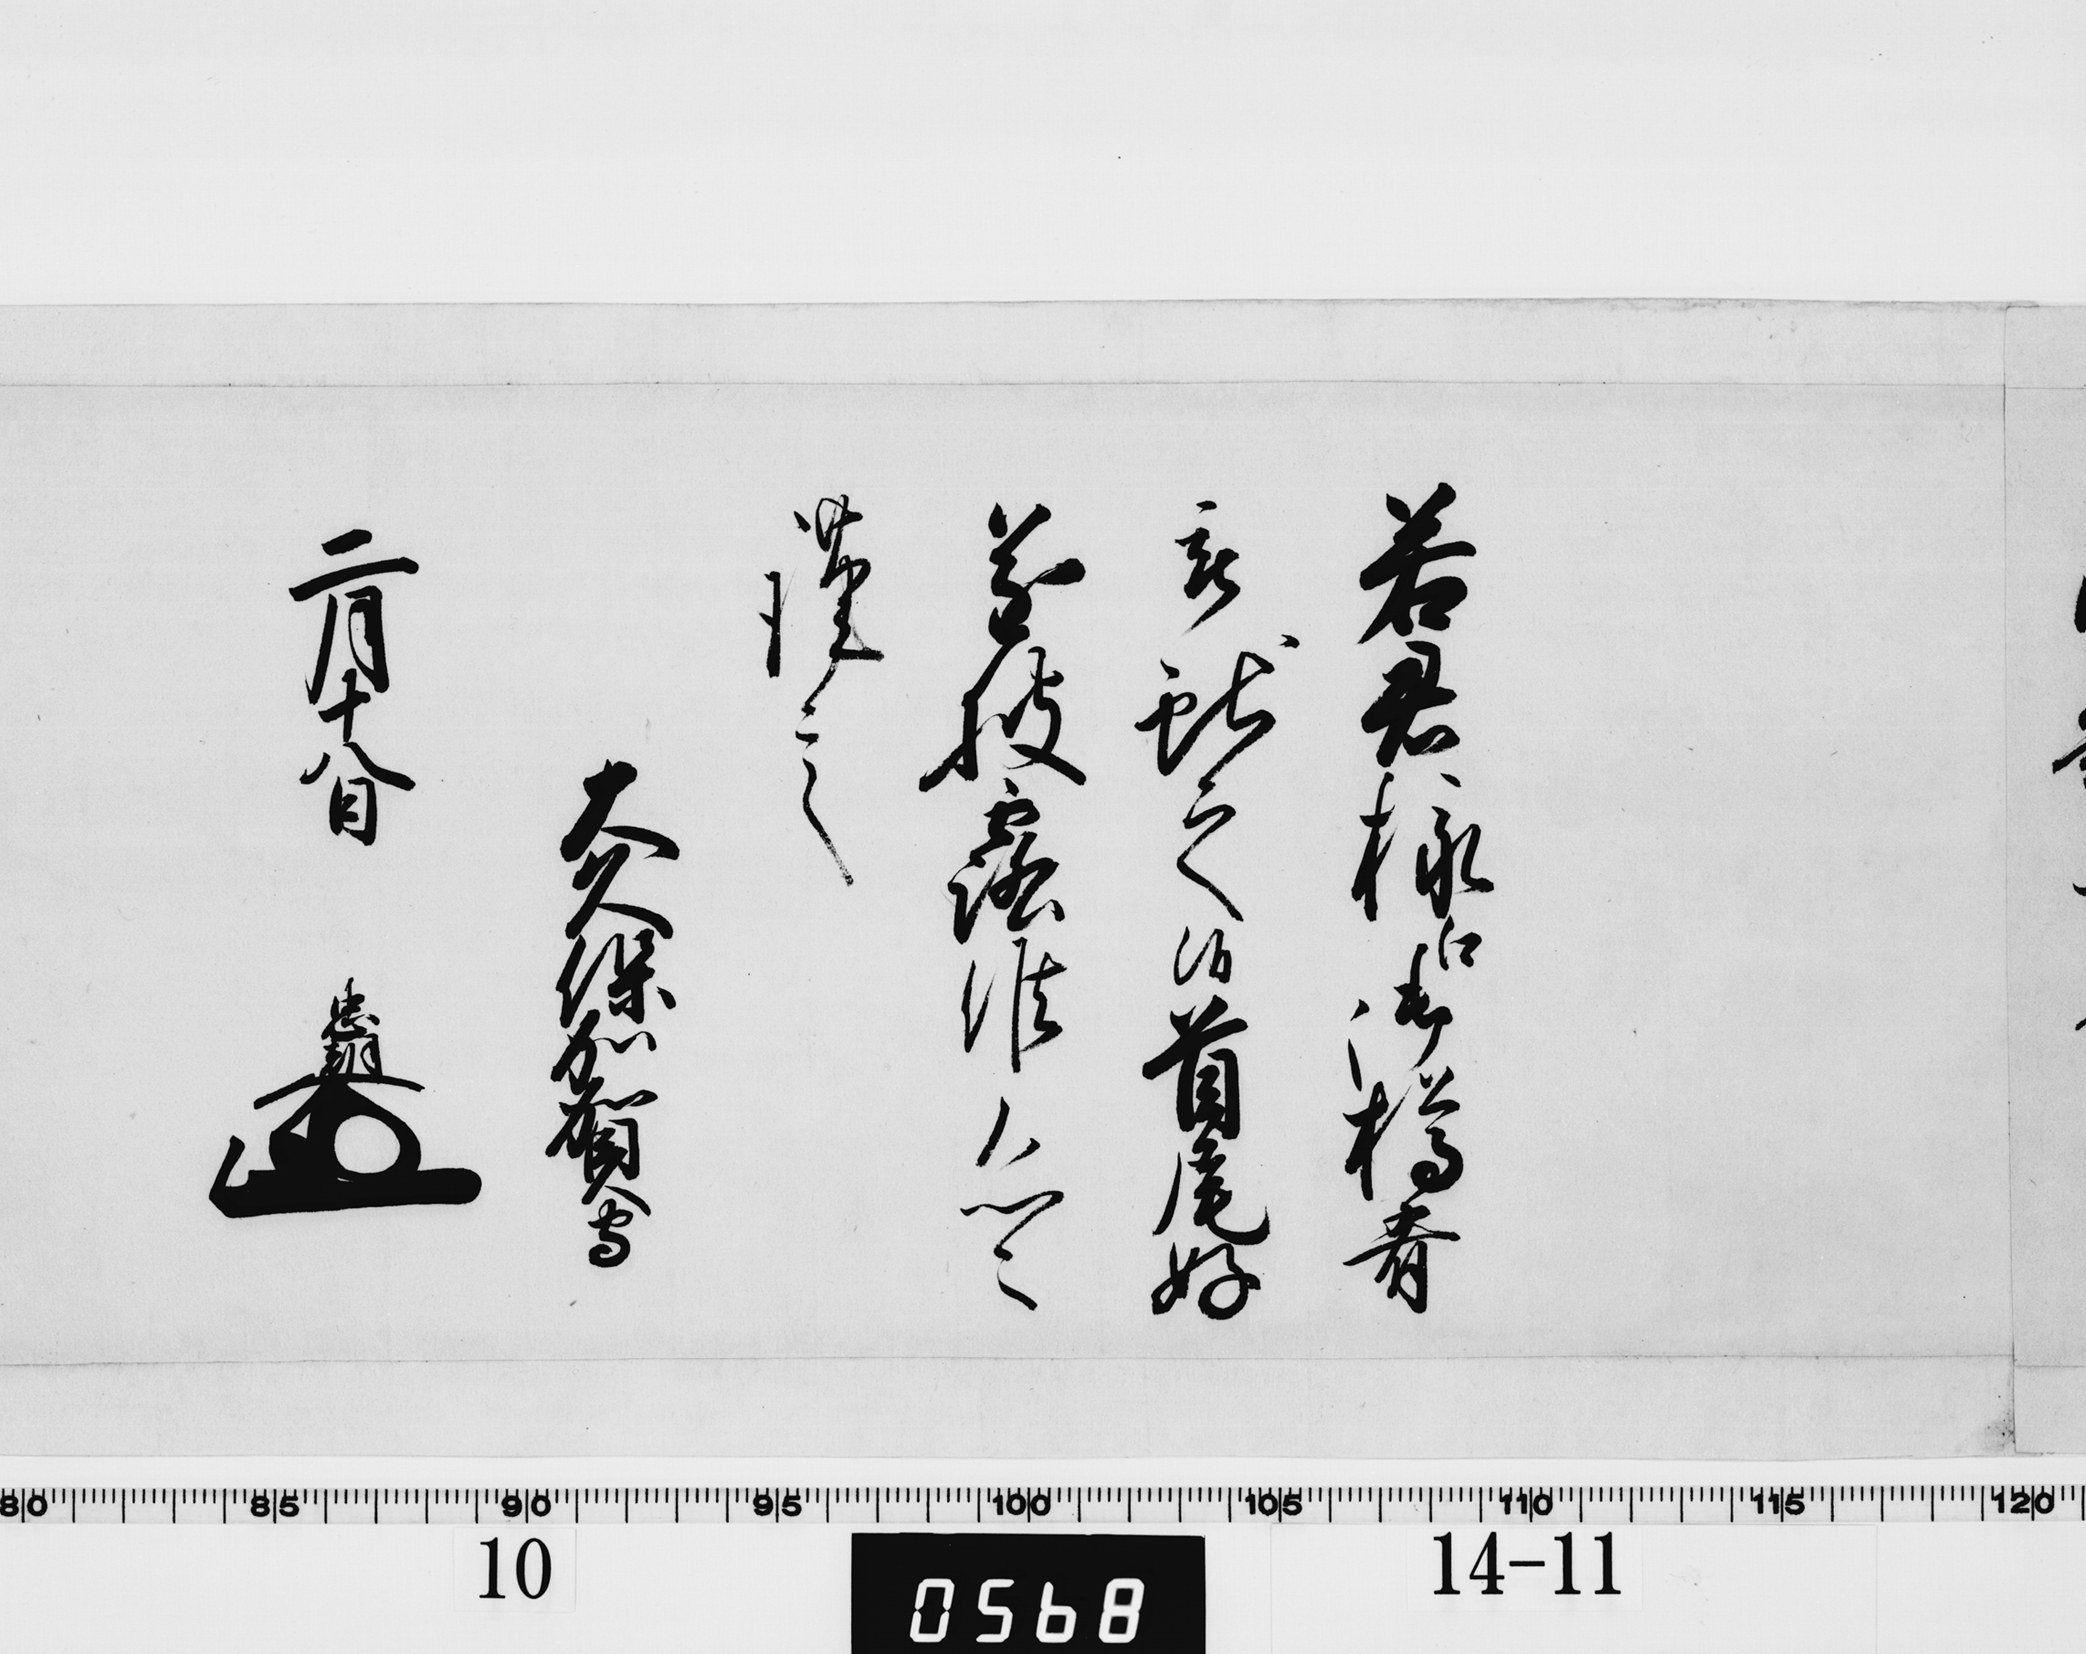 若君様江御樽肴
被献之候首尾好
遂披露候恐々
謹言
大久保加賀守
二月十八日
忠朝
80 85 90 95 100 105 110 115 120
10
0568
14-11